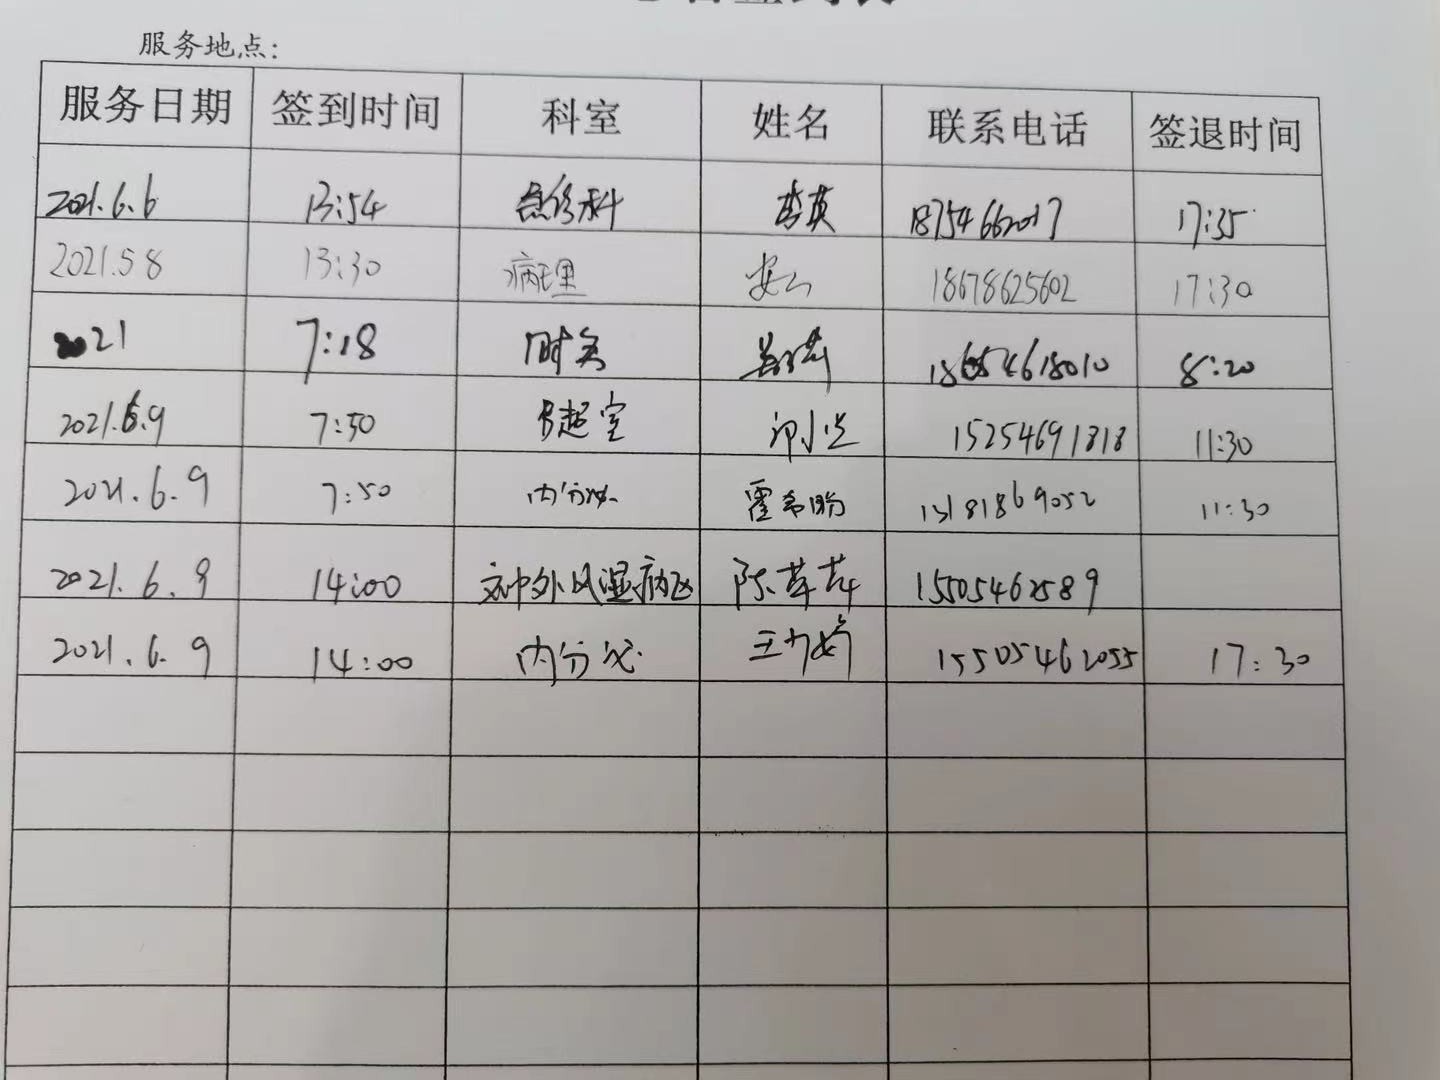 服务地点:
服务日期 签到时间 科室 姓名 联系电话 签退时间
2021.6.6 13:54 急诊科 李英 18754662017 17:35
2021.5 8 13:30 病理 安 18678625602 17:30
2021 7:18 财务 18654618010 8:20
2021.6.9 7:50 B超室 15254691818 11:30
2021.6.9 7:50 内分泌 霍 13181869052 11:30
2021.6.9 14:00 外风湿病区 陈 15505462589
2021.6.9 14:00 内分泌 王 15505462055 17:30